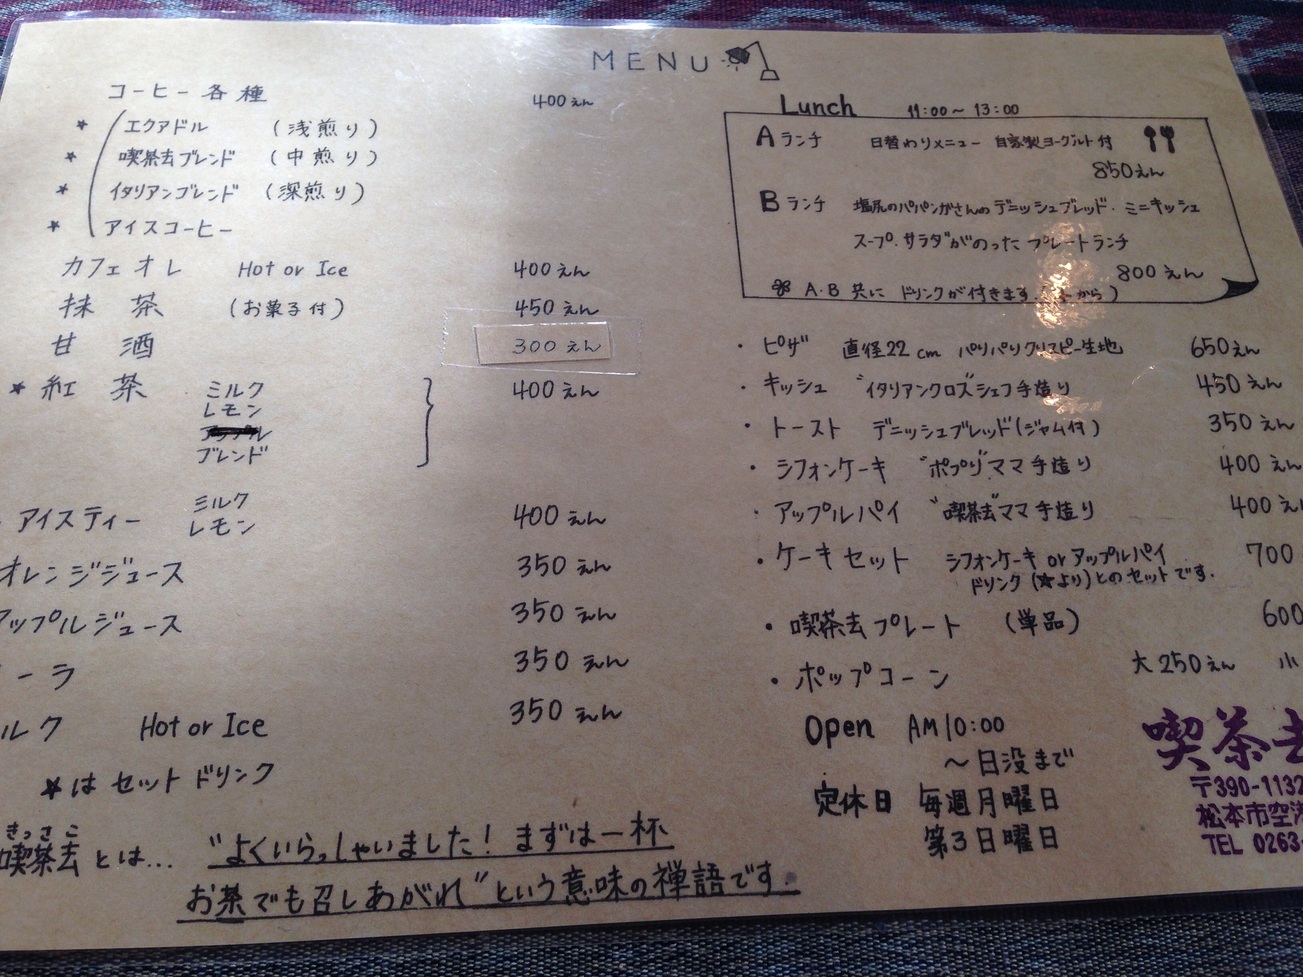 MENU
コーヒー各種 400えん
★ エクアドル (浅煎り)
★ 喫茶去ブレンド (中煎り)
★ イタリアンブレンド (深煎り)
★ アイスコーヒー
カフェオレ Hot or Ice 400えん
抹茶 (お菓子付) 450えん
甘酒 300えん
★ 紅茶 ミルク 400えん
レモン
ブレンド
アイスティー ミルク 400えん
レモン
オレンジジュース 350えん
アップルジュース 350えん
ーラ 350えん
ルク Hot or Ice 350えん
★は セットドリンク
きっさこ
喫茶去とは… "よくいらっしゃいました! まずは一杯
お茶でも召しあがれ"という意味の禅語です.
Lunch 11:00～13:00
Aランチ 日替わりメニュー 自家製ヨーグルト付
850えん
Bランチ 塩尻のパパンがさんのデニッシュブレッド・ミニキッシュ
スープ.サラダがのったプレートランチ
800えん
A・B 共に ドリンクが付きます.(から)
・ピザ 直径22cm パリパリクリスピー生地 650えん
・キッシュ "イタリアンクロズ"シェフ手造り 450えん
・トースト デニッシュブレッド(ジャム付) 350えん
・シフォンケーキ "ポプリ"ママ手造り 400えん
・アップルパイ "喫茶去"ママ手造り 400えん
・ケーキセット シフォンケーキ or アップルパイ 700
ドリンク(★より)とのセットです.
・喫茶去プレート (単品) 600
・ポップコーン 大250えん 小
Open AM10:00
～日没まで
定休日 毎週月曜日
第3日曜日
喫茶去
〒390-1132
松本市空港
TEL 0263-